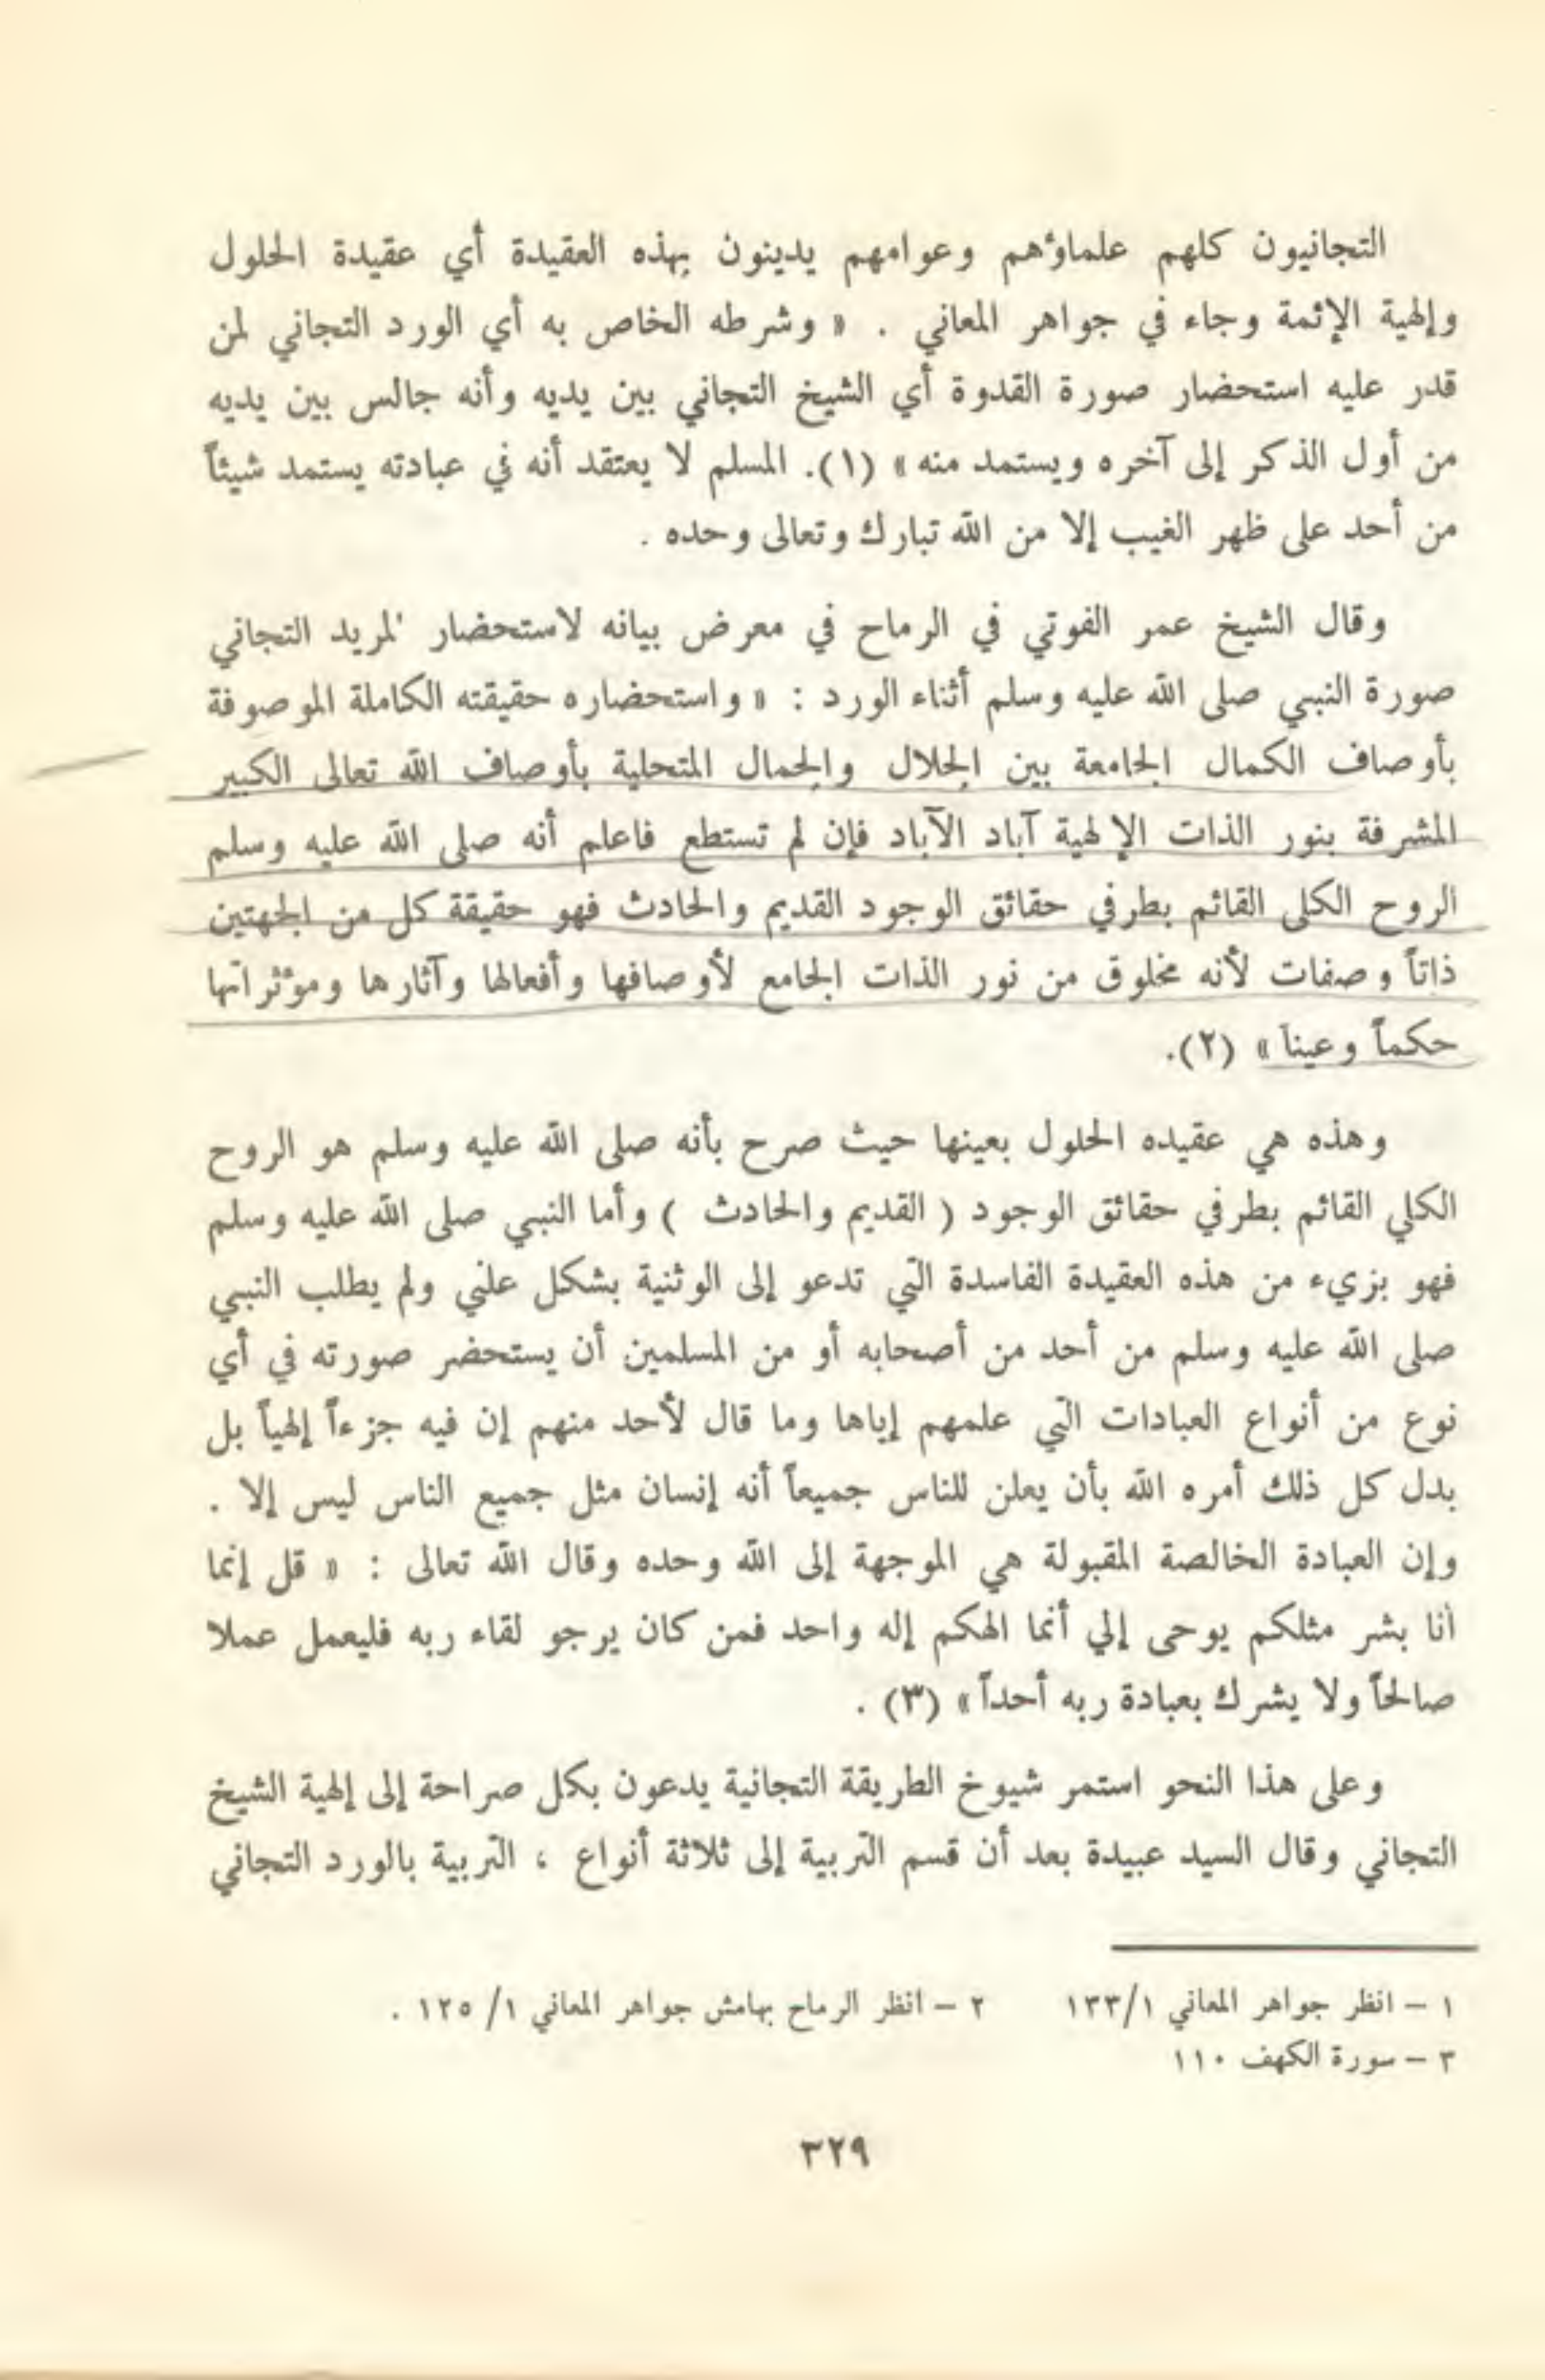 التجانيون كلهم علماؤهم وعوامهم يدينون بهذه العقيدة أي عقيدة الحلول
وإلهية الإئمة وجاء في جواهر المعاني . « وشرطه الخاص به أي الورد التجاني لمن
قدر عليه استحضار صورة القدوة أي الشيخ التجاني بين يديه وأنه جالس بين يديه
من أول الذكر إلى آخره ويستمد منه » (١). المسلم لا يعتقد أنه في عبادته يستمد شيئاً
من أحد على ظهر الغيب إلا من الله تبارك وتعالى وحده .
وقال الشيخ عمر الفوتي في الرماح في معرض بيانه لاستحضار لمريد التجاني
صورة النبي صلى الله عليه وسلم أثناء الورد : « واستحضاره حقيقته الكاملة الموصوفة
بأوصاف الكمال الجامعة بين الجلال والجمال المتحلية بأوصاف الله تعالى الكبير
المشرفة بنور الذات الإلهية آباد الآباد فإن لم تستطع فاعلم أنه صلى الله عليه وسلم
الروح الكلى القائم بطرفي حقائق الوجود القديم والحادث فهو حقيقة كل من الجهتين
ذاتاً وصفات لأنه مخلوق من نور الذات الجامع لأوصافها وأفعالها وآثارها ومؤثراتها
حكماً وعيناً » (٢).
وهذه هي عقيده الحلول بعينها حيث صرح بأنه صلى الله عليه وسلم هو الروح
الكلي القائم بطرفي حقائق الوجود ( القديم والحادث ) وأما النبي صلى الله عليه وسلم
فهو بزيء من هذه العقيدة الفاسدة التي تدعو إلى الوثنية بشكل علني ولم يطلب النبي
صلى الله عليه وسلم من أحد من أصحابه أو من المسلمين أن يستحضر صورته في أي
نوع من أنواع العبادات التي علمهم إياها وما قال لأحد منهم إن فيه جزءاً إلهياً بل
بدل كل ذلك أمره الله بأن يعلن للناس جميعاً أنه إنسان مثل جميع الناس ليس إلا .
وإن العبادة الخالصة المقبولة هي الموجهة إلى الله وحده وقال الله تعالى : « قل إنما
أنا بشر مثلكم يوحى إلي أنما الهكم إله واحد فمن كان يرجو لقاء ربه فليعمل عملا
صالحاً ولا يشرك بعبادة ربه أحداً » (٣) .
وعلى هذا النحو استمر شيوخ الطريقة التجانية يدعون بكل صراحة إلى إلهية الشيخ
التجاني وقال السيد عبيدة بعد أن قسم التربية إلى ثلاثة أنواع ، التربية بالورد التجاني
١ – انظر جواهر المعاني ١٣٣/١ ٢ – انظر الرماح بهامش جواهر المعاني ١/ ١٢٥ .
٣ – سورة الكهف ١١٠
٣٢٩